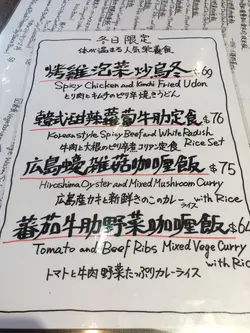 冬日限定
体が温まる人気栄養食
烤雞泡菜炒烏冬 $69
Spicy Chicken and Kimchi Fried Udon
とり肉とキムチのピリ辛焼きうどん
韓式甜辣蘿蔔牛肋定食 $76
Korean style Spicy Beef and White Radish Rice Set
牛肉と大根のピリ辛煮コリアン定食
広島蠔雑菇咖喱飯 $75
Hiroshima Oyster and Mixed Mushroom Curry with Rice
広島産カキと新鮮きのこのカレーライス
蕃茄牛肋野菜咖喱飯
Tomato and Beef Ribs Mixed Vege Curry with Ric
トマトと牛肉 野菜たっぷりカレーライス